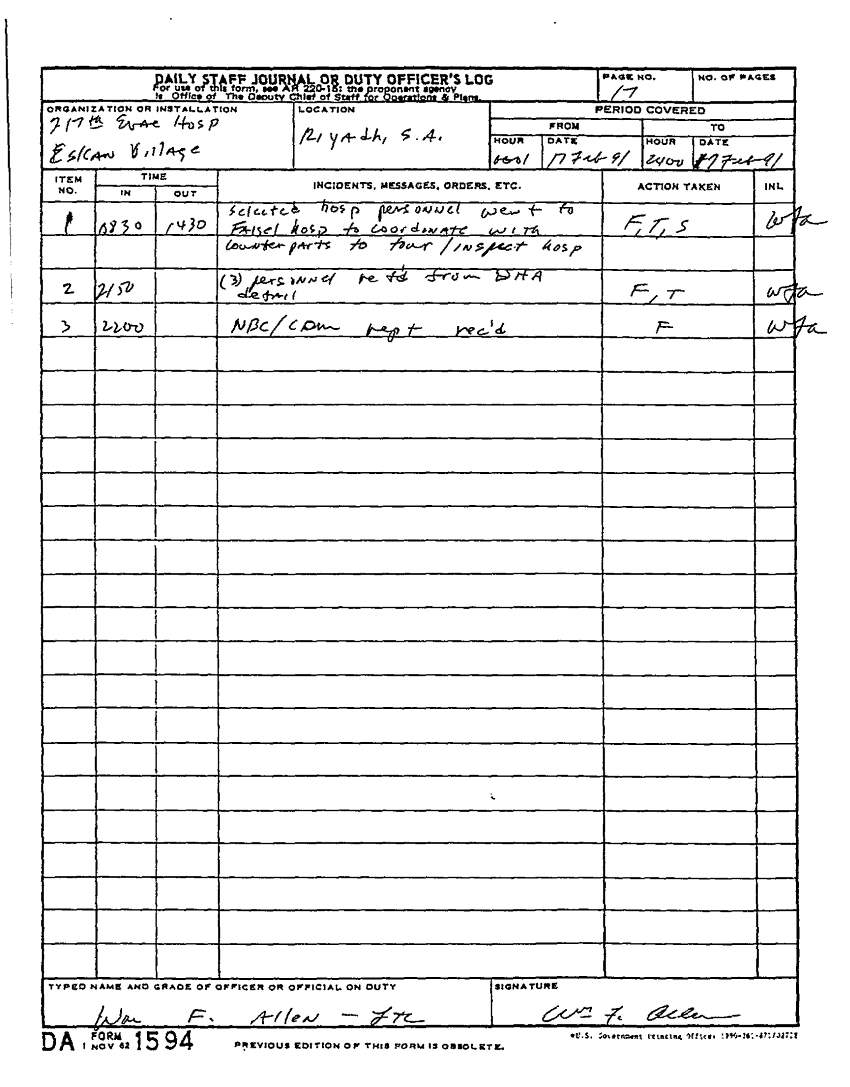 DAILY STAFF JOURNAL OR DUTY OFFICER'S LOG
For use of this form, see AR 220-15; the proponent agency
is Office of The Deputy Chief of Staff for Operations & Plans.
PAGE NO.
17
NO. OF PAGES
ORGANIZATION OR INSTALLATION
217th Evac Hosp
Eskan Village
LOCATION
Riyadh, S.A.
PERIOD COVERED
FROM
TO
HOUR
DATE
HOUR
DATE
0001
17 Feb 91
2400
17 Feb 91
ITEM NO.
TIME
IN
OUT
INCIDENTS, MESSAGES, ORDERS, ETC.
ACTION TAKEN
INL
1 0830 1430 selected hosp personnel went to
Faisel hosp to coordinate with
counterparts to tour/inspect hosp
F, T, S wfa
2 2150 (3) personnel ret'd from DHA
detail F, T wfa
3 2200 NBC/CDM rept rec'd F wfa
TYPED NAME AND GRADE OF OFFICER OR OFFICIAL ON DUTY
Wm F. Allen - LTC
SIGNATURE
Wm F. Allen
DA FORM 1594
1 NOV 62
PREVIOUS EDITION OF THIS FORM IS OBSOLETE.
*U.S. Government Printing Office: